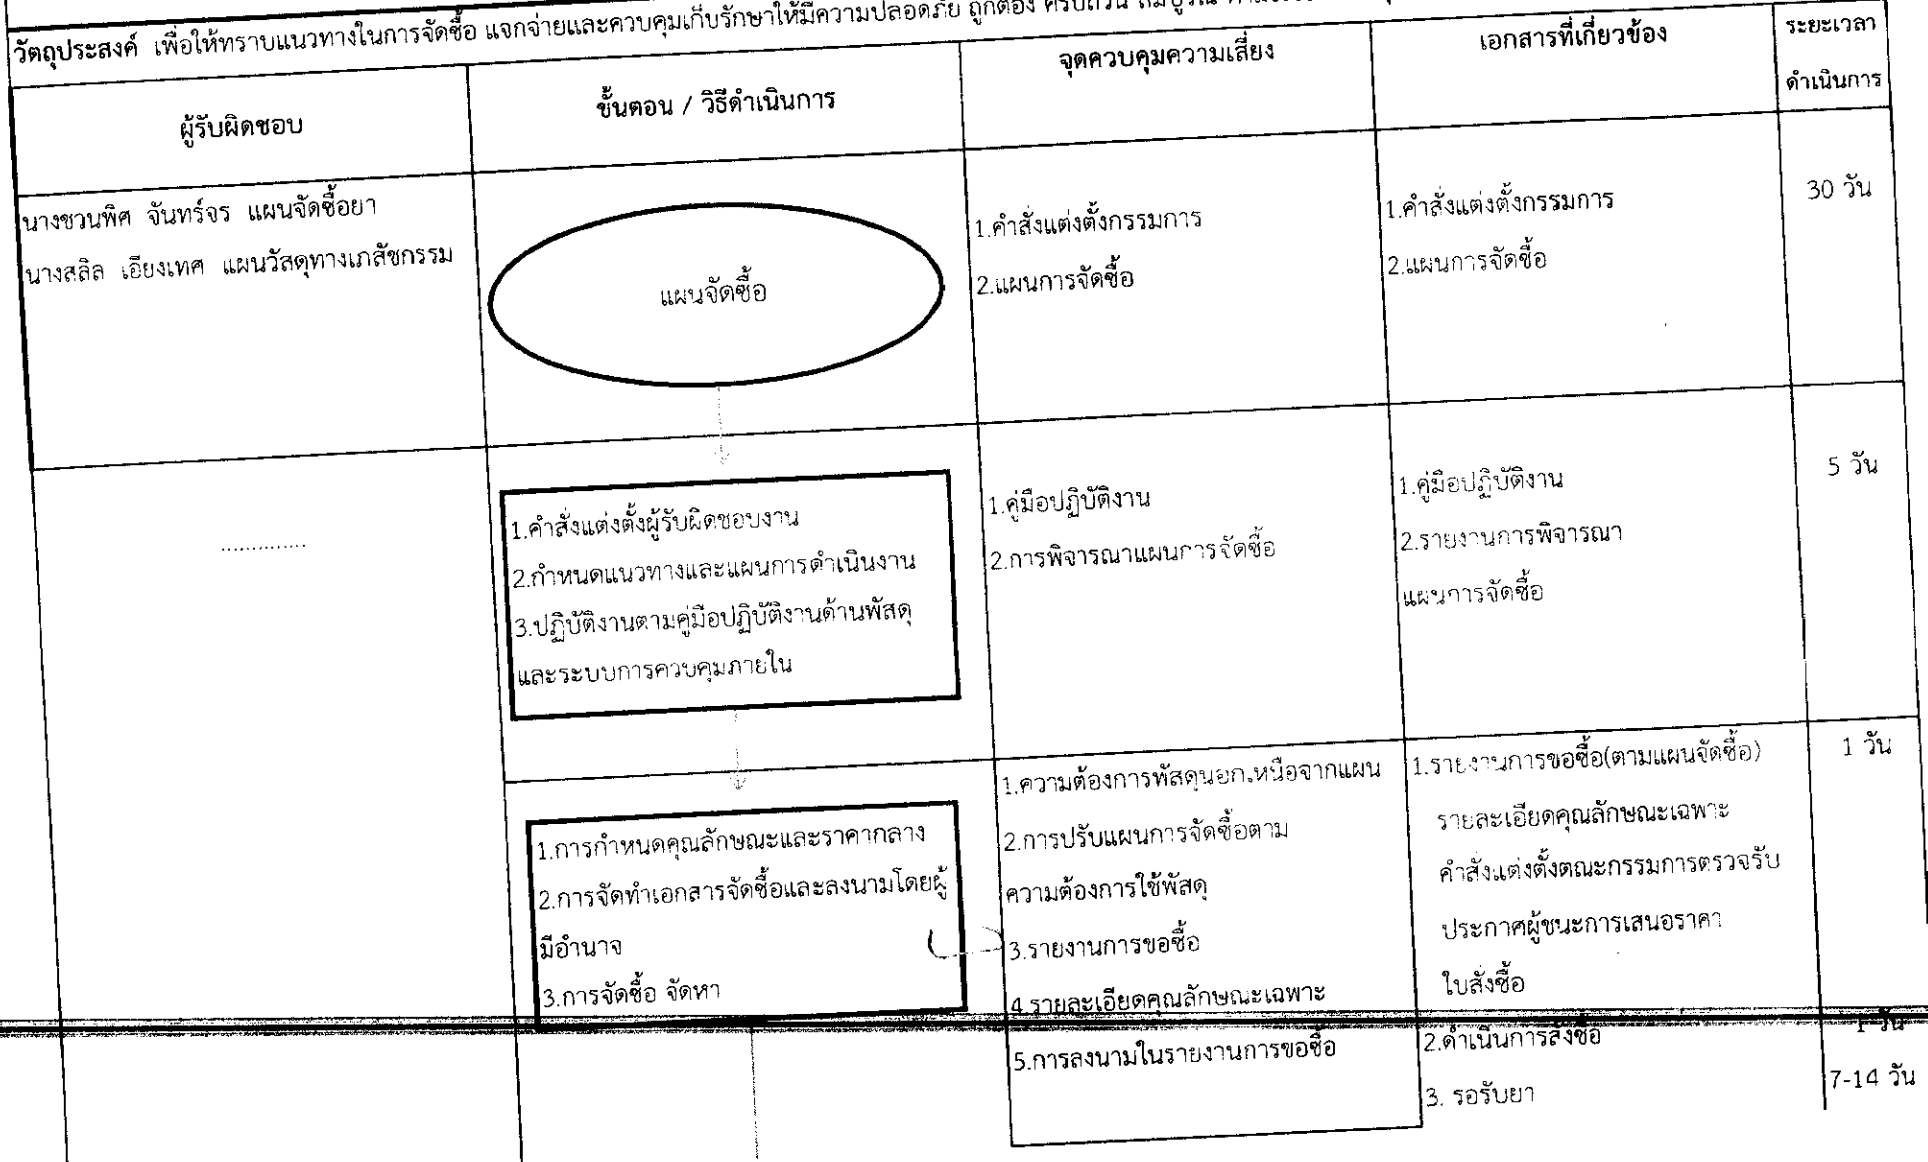 วัตถุประสงค์ เพื่อให้ทราบแนวทางในการจัดซื้อ แจกจ่ายและควบคุมเก็บรักษาให้มีความปลอดภัย ถูกต้อง ครบถ้วน
ผู้รับผิดชอบ
ขั้นตอน / วิธีดำเนินการ
จุดควบคุมความเสี่ยง
เอกสารที่เกี่ยวข้อง
ระยะเวลา
ดำเนินการ
นางชวนพิศ จันทร์จร แผนจัดซื้อยา
นางสลิล เอียงเทศ แผนวัสดุทางเภสัชกรรม
แผนจัดซื้อ
1.คำสั่งแต่งตั้งกรรมการ
2.แผนการจัดซื้อ
1.คำสั่งแต่งตั้งกรรมการ
2.แผนการจัดซื้อ
30 วัน
.............
1.คำสั่งแต่งตั้งผู้รับผิดชอบงาน
2.กำหนดแนวทางและแผนการดำเนินงาน
3.ปฏิบัติงานตามคู่มือปฏิบัติงานด้านพัสดุ
และระบบการควบคุมภายใน
1.คู่มือปฏิบัติงาน
2.การพิจารณาแผนการจัดซื้อ
1.คู่มือปฏิบัติงาน
2.รายงานการพิจารณา
แผนการจัดซื้อ
5 วัน
1.การกำหนดคุณลักษณะและราคากลาง
2.การจัดทำเอกสารจัดซื้อและลงนามโดยผู้
มีอำนาจ
3.การจัดซื้อ จัดหา
1.ความต้องการพัสดุนอก,หนือจากแผน
2.การปรับแผนการจัดซื้อตาม
ความต้องการใช้พัสดุ
3.รายงานการขอซื้อ
4.รายละเอียดคุณลักษณะเฉพาะ
5.การลงนามในรายงานการขอซื้อ
1.รายงานการขอซื้อ(ตามแผนจัดซื้อ)
รายละเอียดคุณลักษณะเฉพาะ
คำสั่งแต่งตั้งตณะกรรมการตรวจรับ
ประกาศผู้ชนะการเสนอราคา
ใบสั่งซื้อ
2.ดำเนินการสั่งซื้อ
3. รอรับยา
1 วัน
1 วัน
7-14 วัน